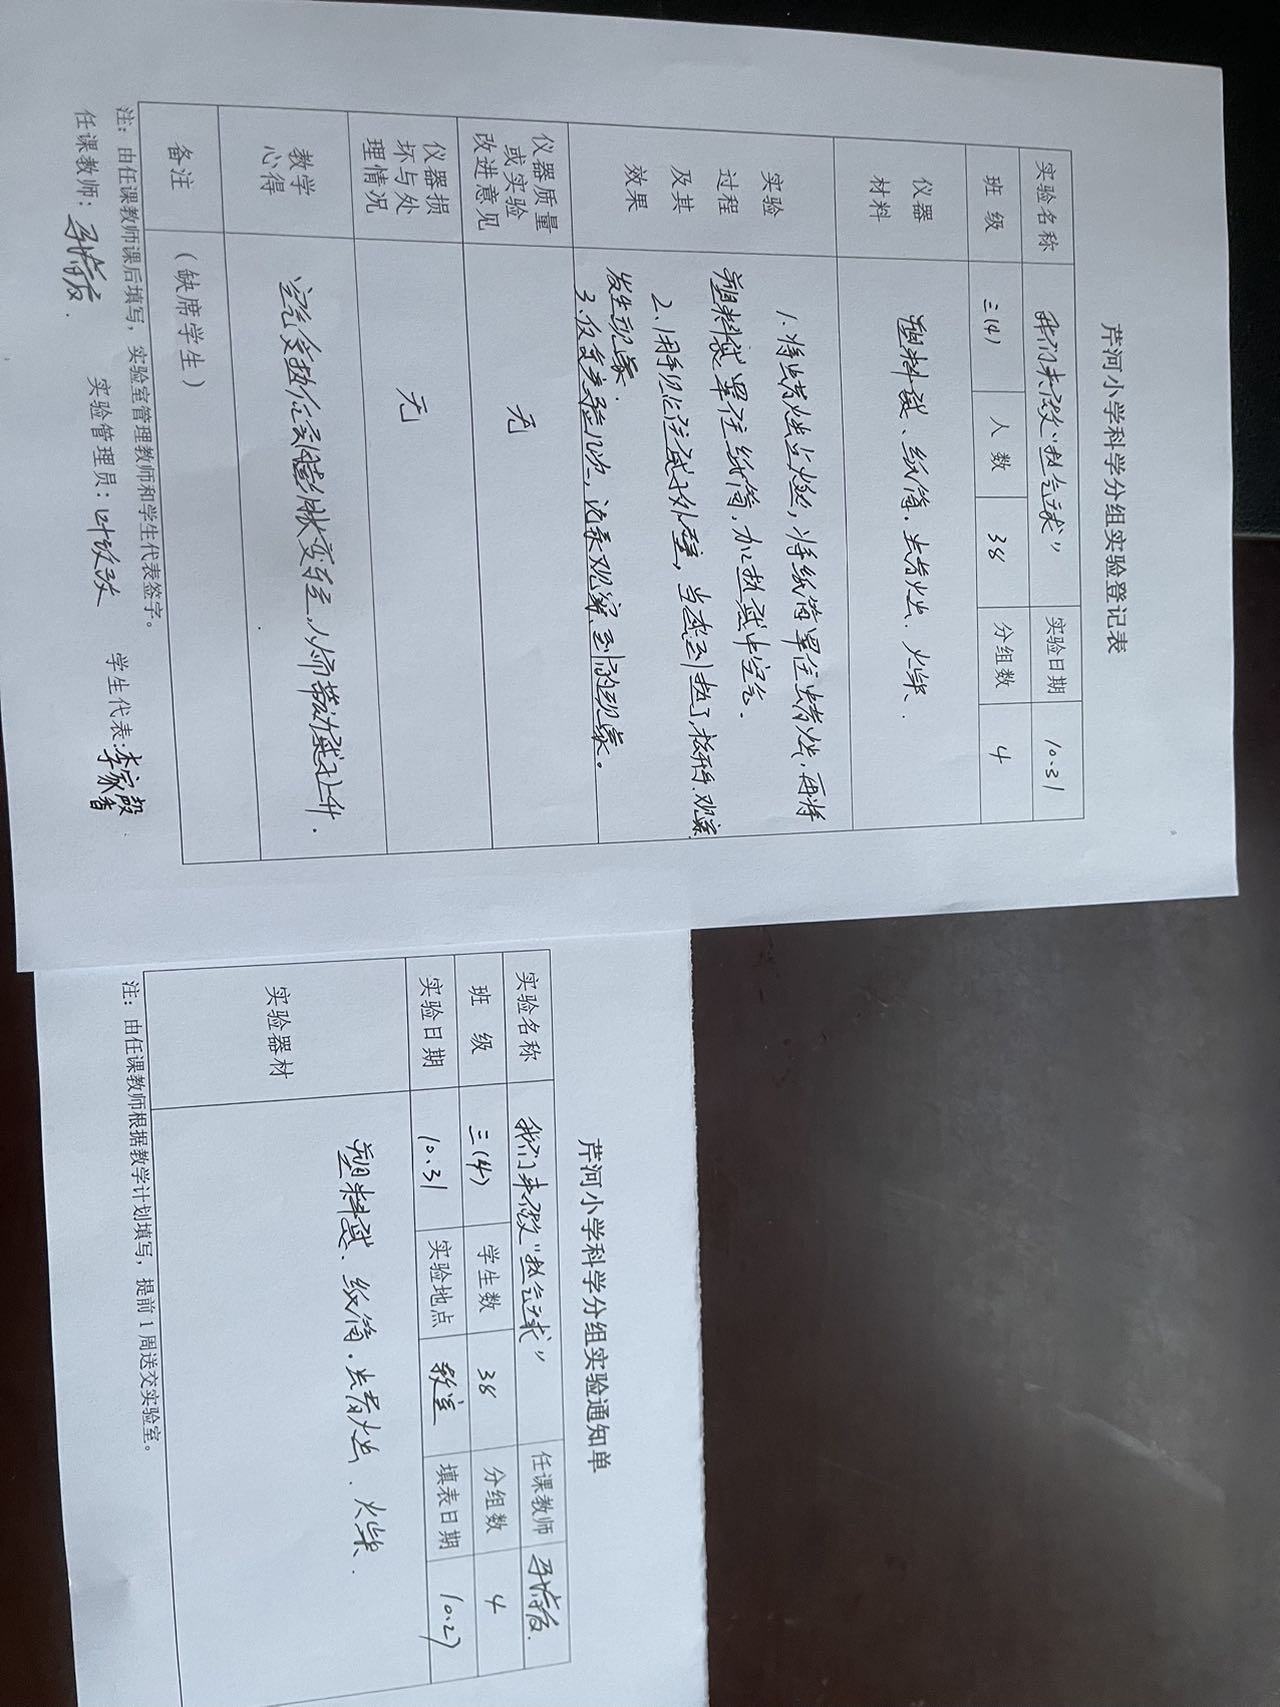 芹河小学科学分组实验登记表
实验名称 我们来做“热气球” 实验日期 10.31
班 级 三(4) 人 数 38 分组数 4
仪器
材料
塑料袋、纸筒、蜡烛、火柴.
实验
过程
及其
效果
1.将蜡烛点燃,将纸筒罩住蜡烛,再将
塑料袋罩住纸筒,加热袋中空气.
2.用手贴住袋子外壁,当感到热了,松手.观察
发生现象.
3.反复实验几次,记录观察到的现象。
仪器质量
或实验
改进意见
无
仪器损
坏与处
理情况
无
教学
心得
空气受热后体积变轻,从而带动袋子上升.
备注
(缺席学生)
注:由任课教师课后填写,实验室管理教师和学生代表签字。
任课教师: 实验管理员: 学生代表:李家馨
芹河小学科学分组实验通知单
实验名称 我们来做“热气球” 任课教师
班 级 三(4) 学生数 38 分组数 4
实验日期 10.31 实验地点 教室 填表日期 10.27
实验器材
塑料袋、纸筒.蜡烛、火柴.
注:由任课教师根据教学计划填写,提前1周送交实验室。